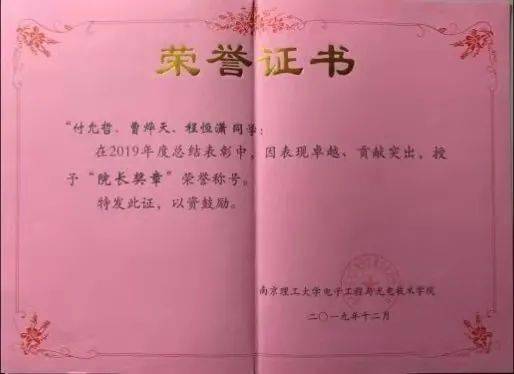 荣誉证书
“付允哲、曹烨天、程恒潇同学:
在2019年度总结表彰中，因表现卓越、贡献突出，授
予“院长奖章”荣誉称号。
特发此证，以资鼓励。
南京理工大学电子工程与光电技术学院
二〇一九年十二月